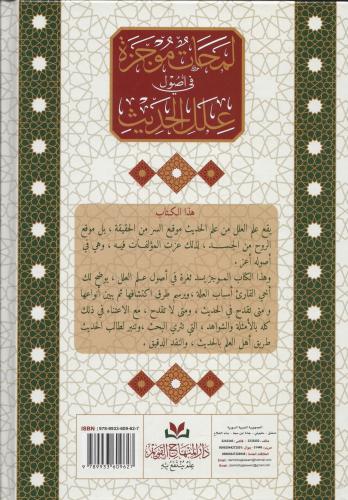 لمحات موجزة
في أصول
علل الحديث
هذا الكتاب
يقع علم العلل من علم الحديث موقع السر من الحقيقة ، بل موقع
الروح من الجسد ، لذلك عزت المؤلفات فيه ، وهي في
أصوله أعز .
وهذا الكتاب الموجز يسد ثغرة في أصول علم العلل ، يوضح لك
أخي القارئ أسباب العلة ، ويرسم طرق اكتشافها ثم يبين أنواعها
و متى تقدح في الحديث ، ومتى لا تقدح ، مع الاعتناء في ذلك
كله بالأمثلة والشواهد ، التي تثري البحث ، وتنير لطالب الحديث
طريق أهل العلم بالحديث ، والنقد الدقيق .
ISBN: 978-9933-609-62-7
9 789933 609627
دار المنهاج القويم
علم ينتفع به
الجمهورية العربية السورية